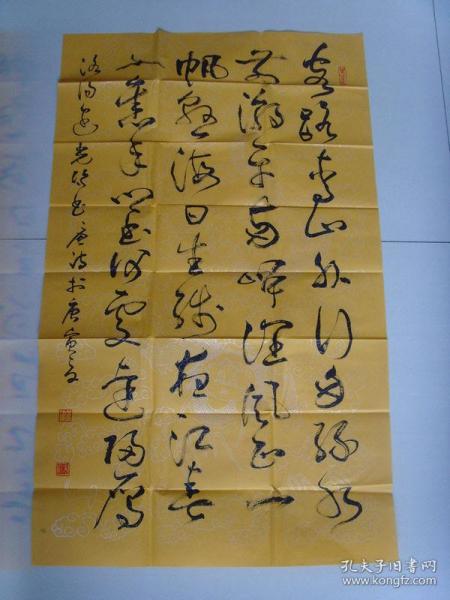 客路青山外行舟绿水
前潮平两岸阔风正一
帆悬海日生残夜江春
入旧年乡书何处达归雁
洛阳边 书唐诗於
孔夫子旧书网
www.kongfz.com